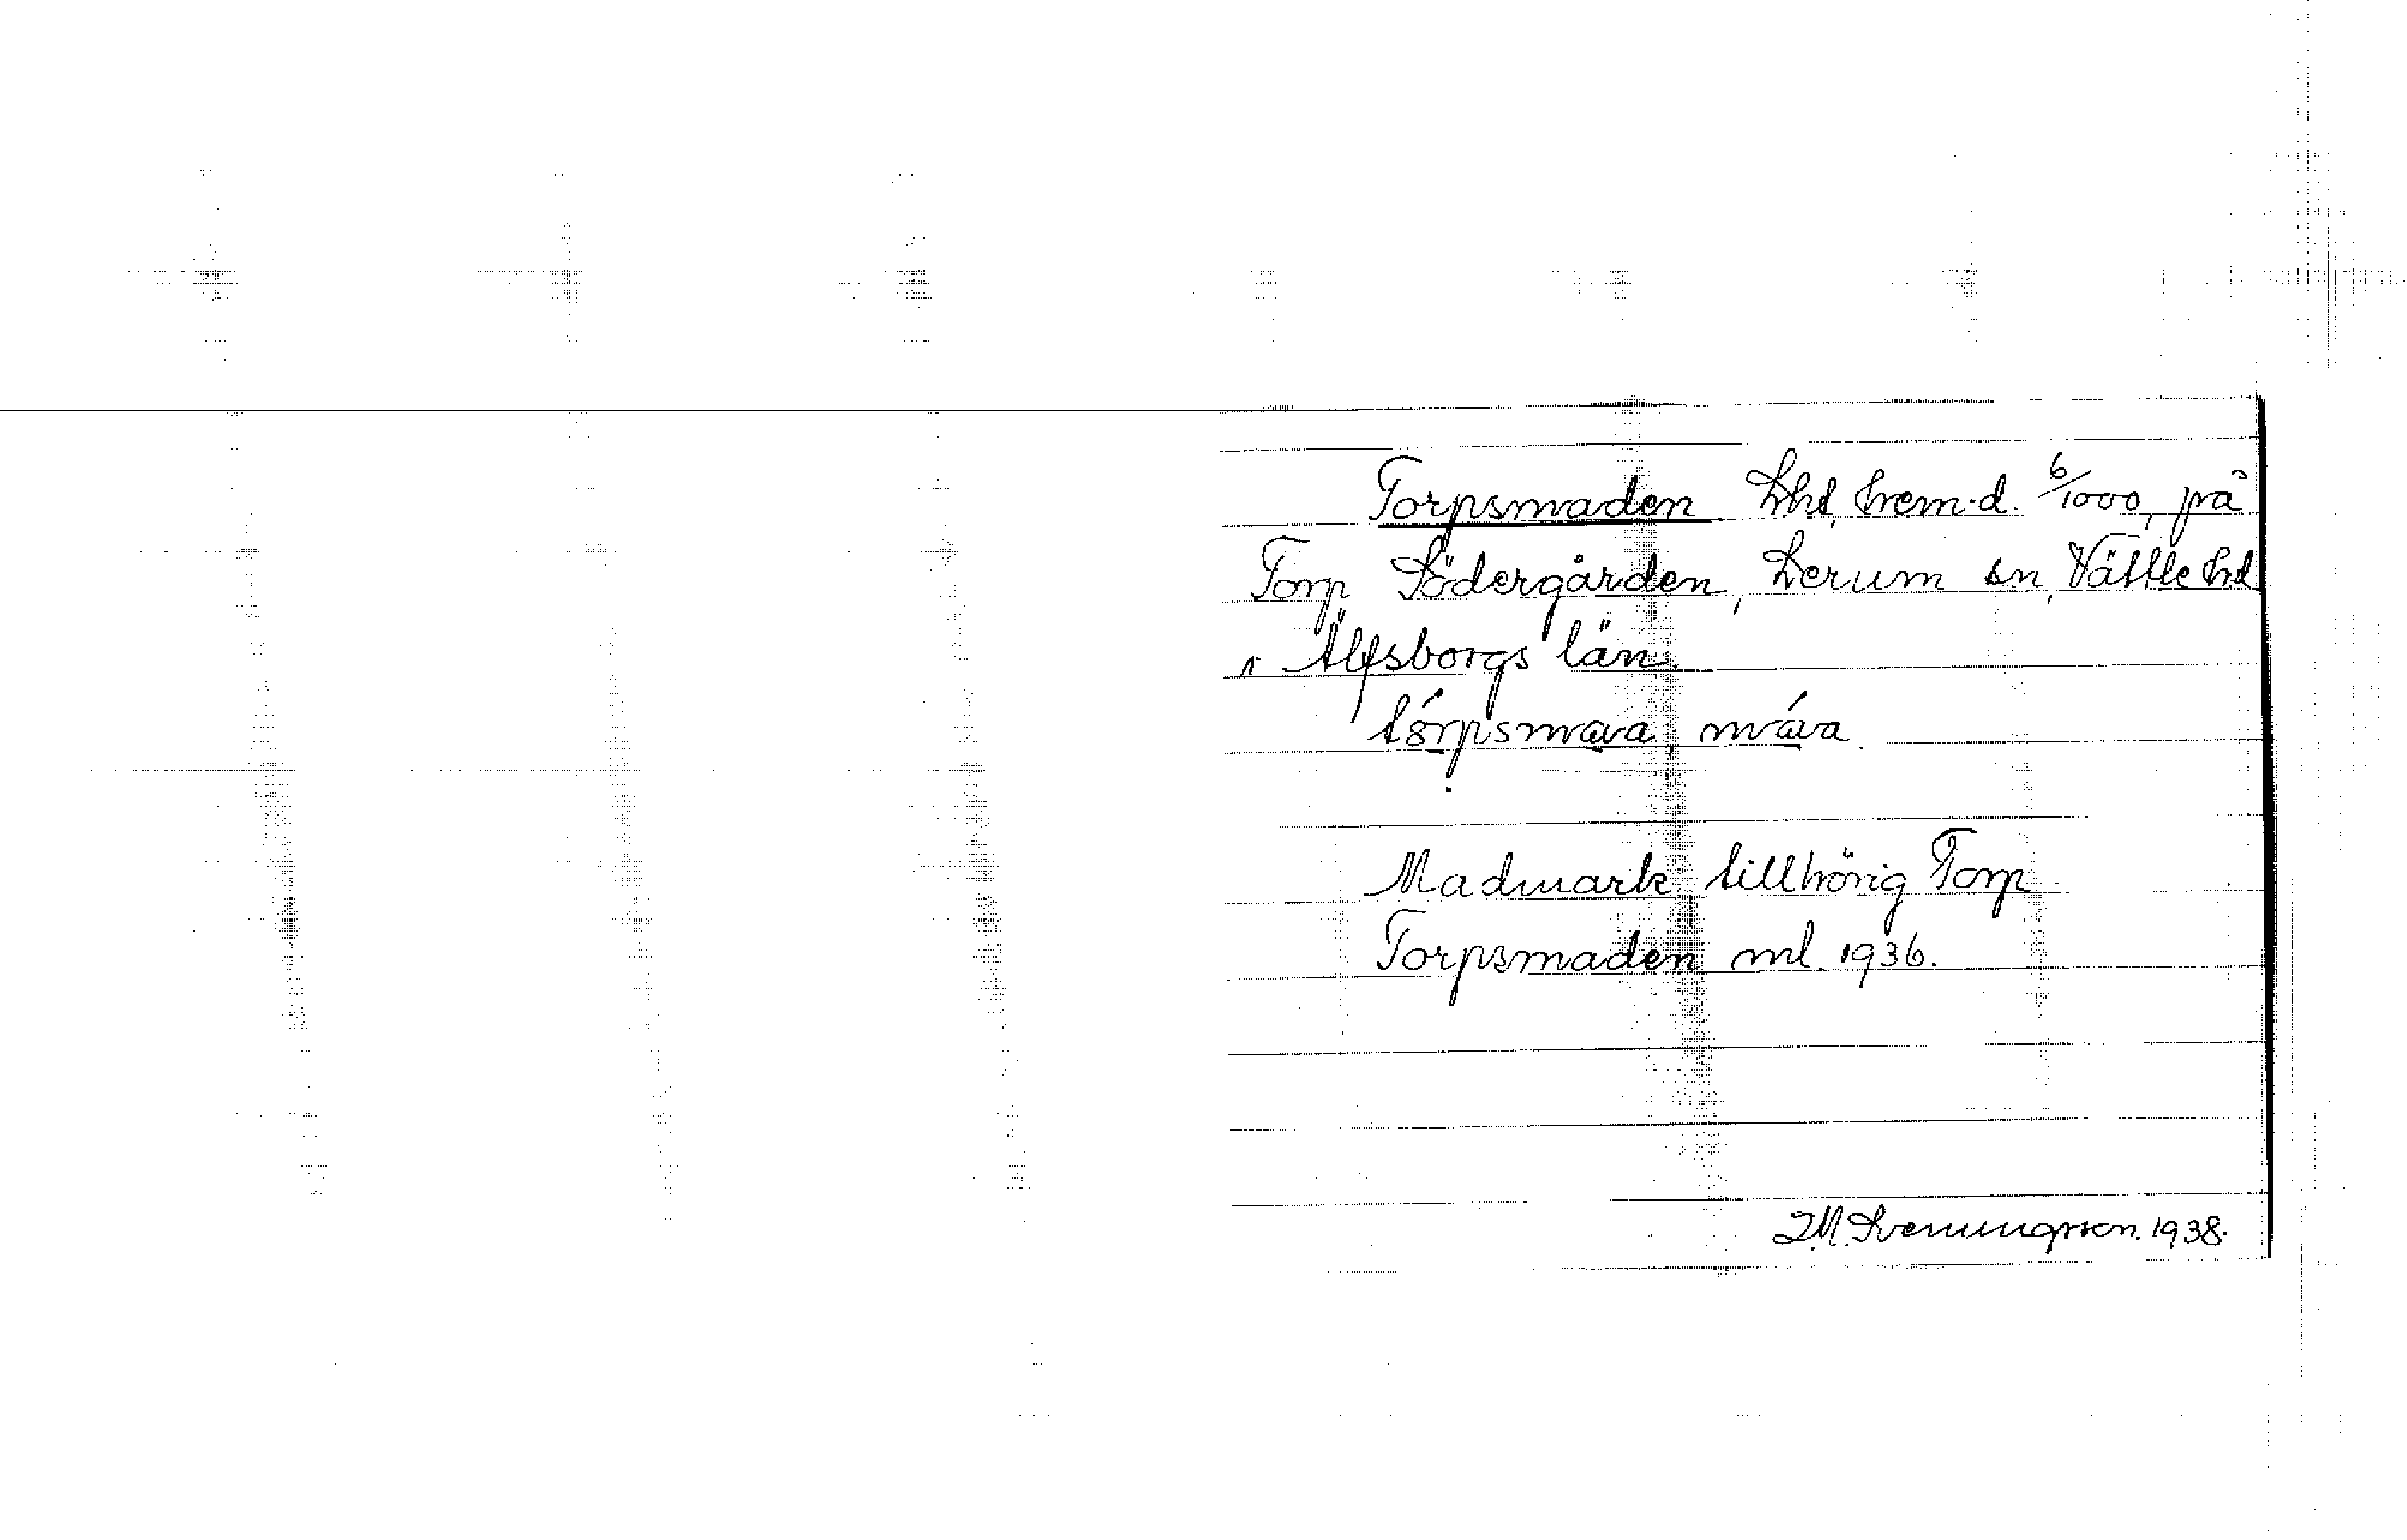 Torpsmaden Lht, hem.d. 6/1000, på
Torp Södergården, Lerum sn, Vättle hd
" Älfsborgs län.
tórpsmava, máva
Madmark tillhörig Torp
Torpsmaden ml. 1936.
I.M. Sveningsson. 1938.